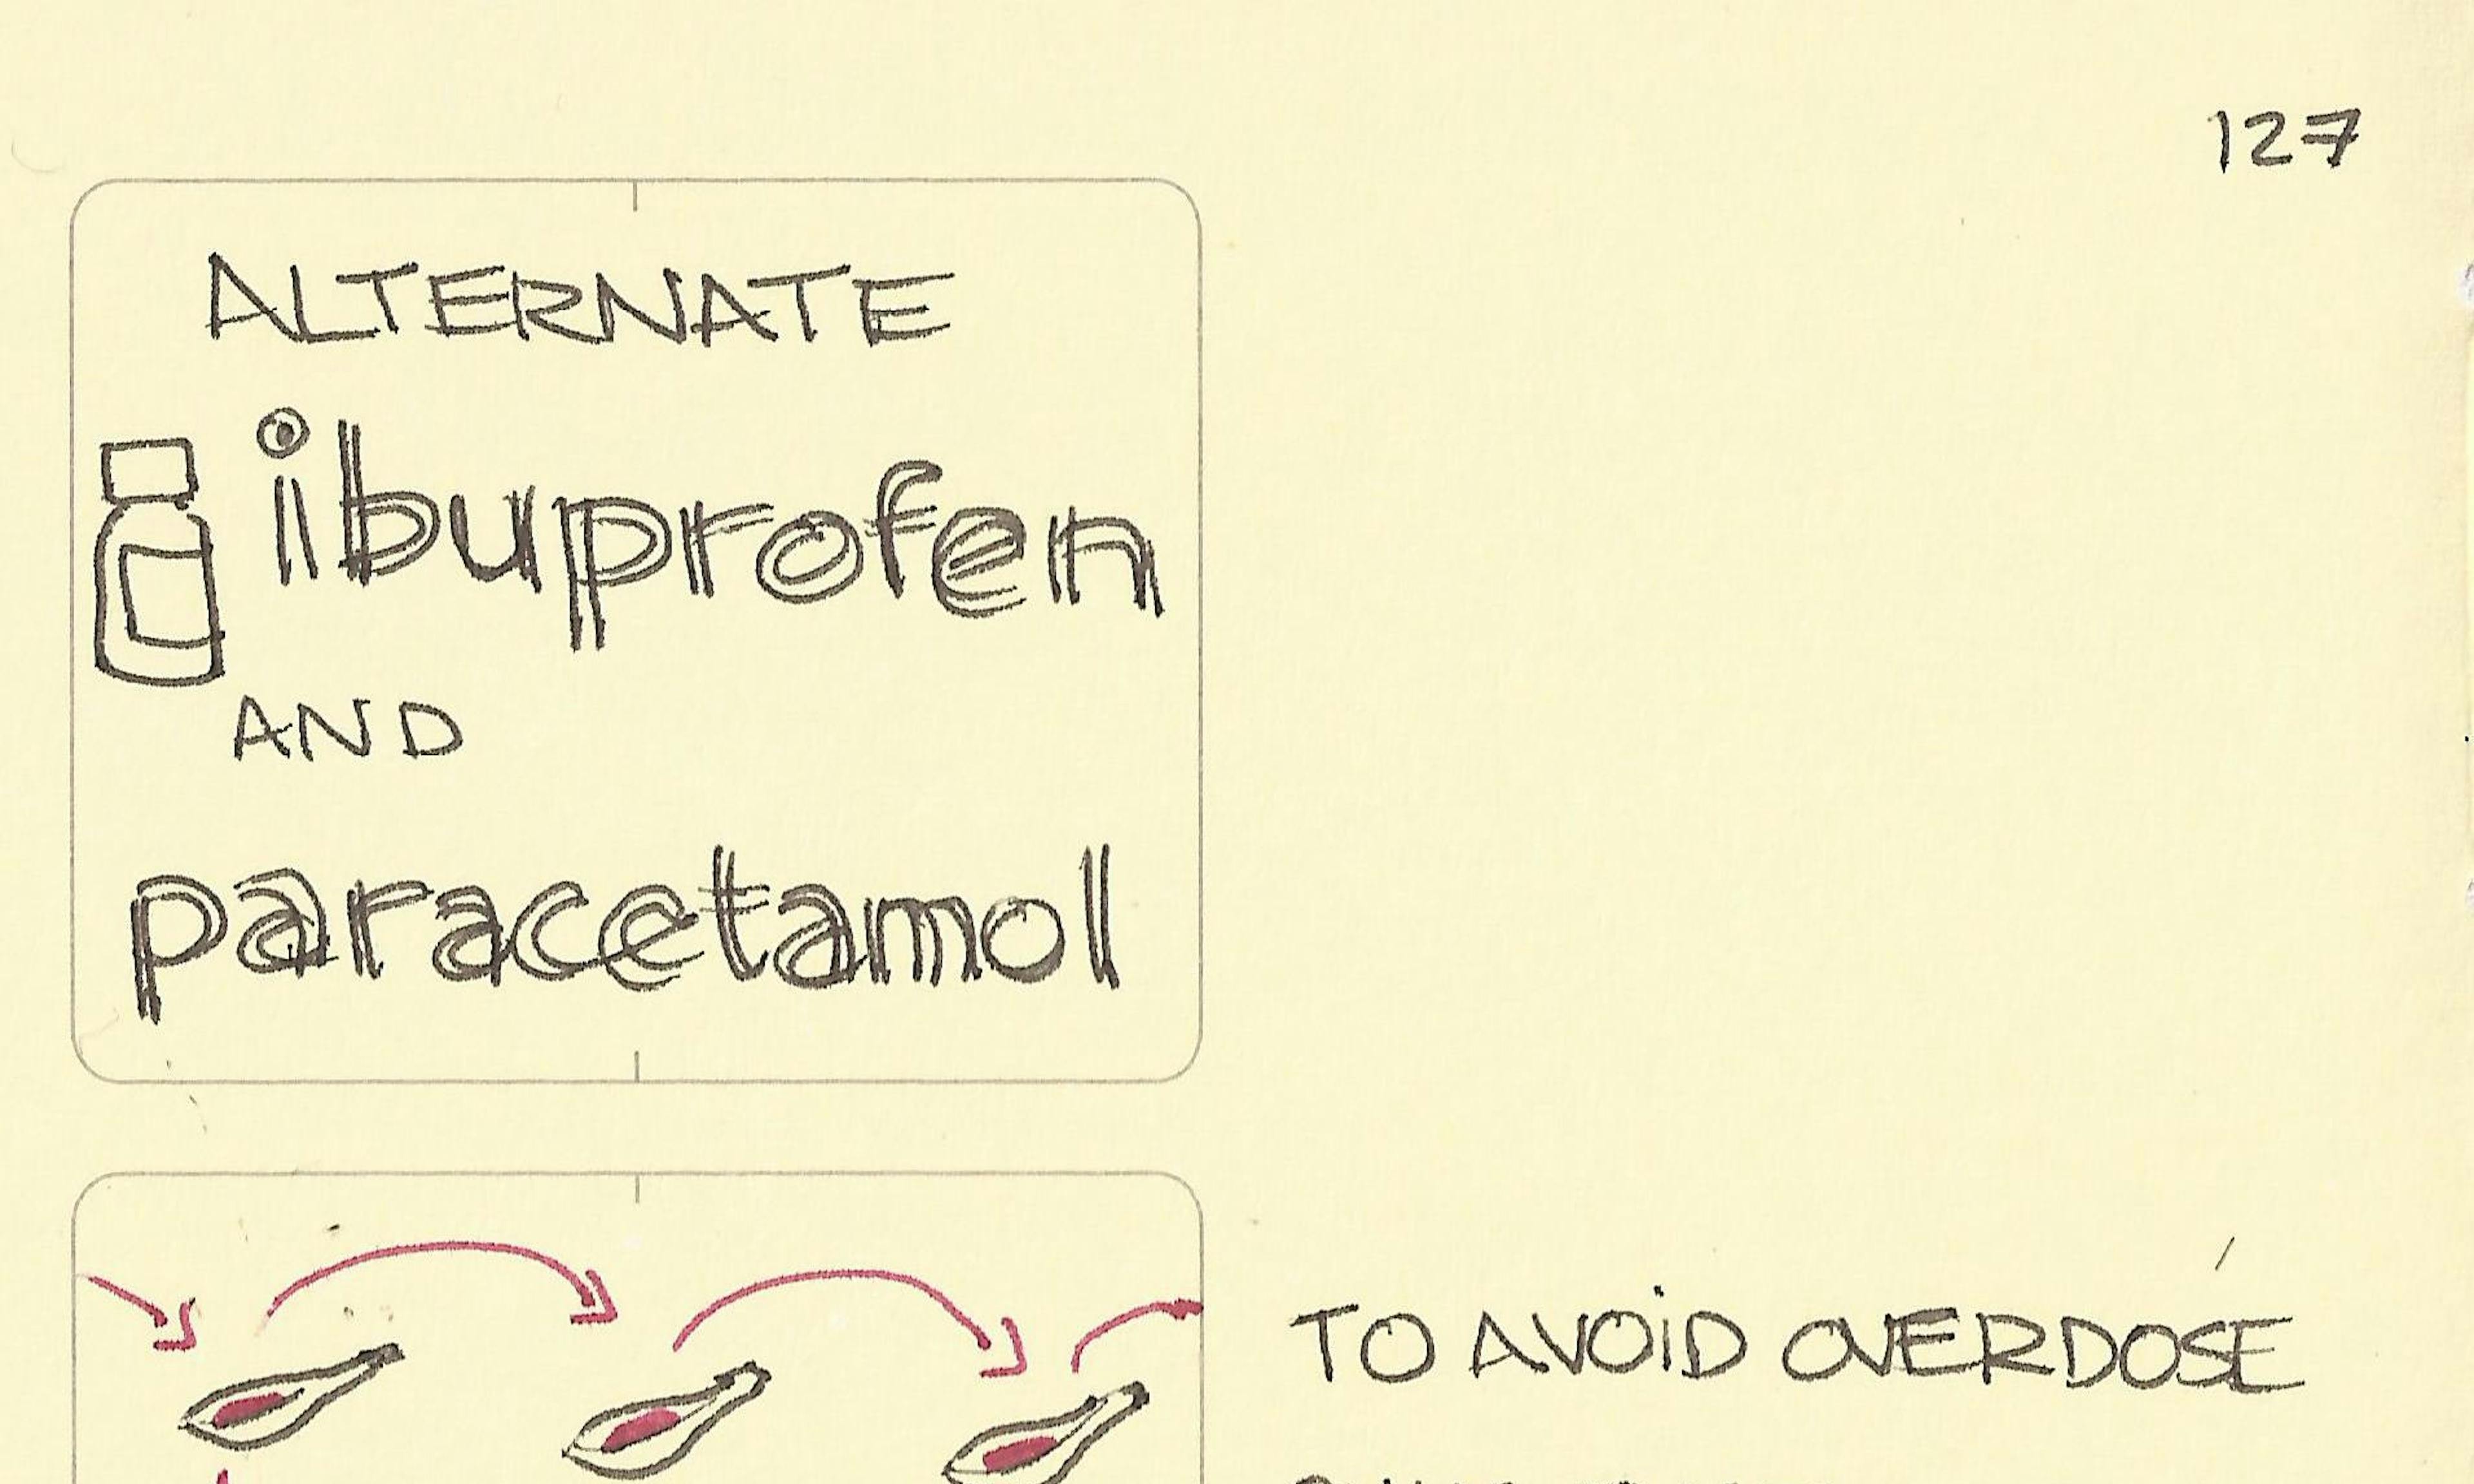 127
ALTERNATE
ibuprofen
AND
paracetamol
TO AVOiD OVERDOSE